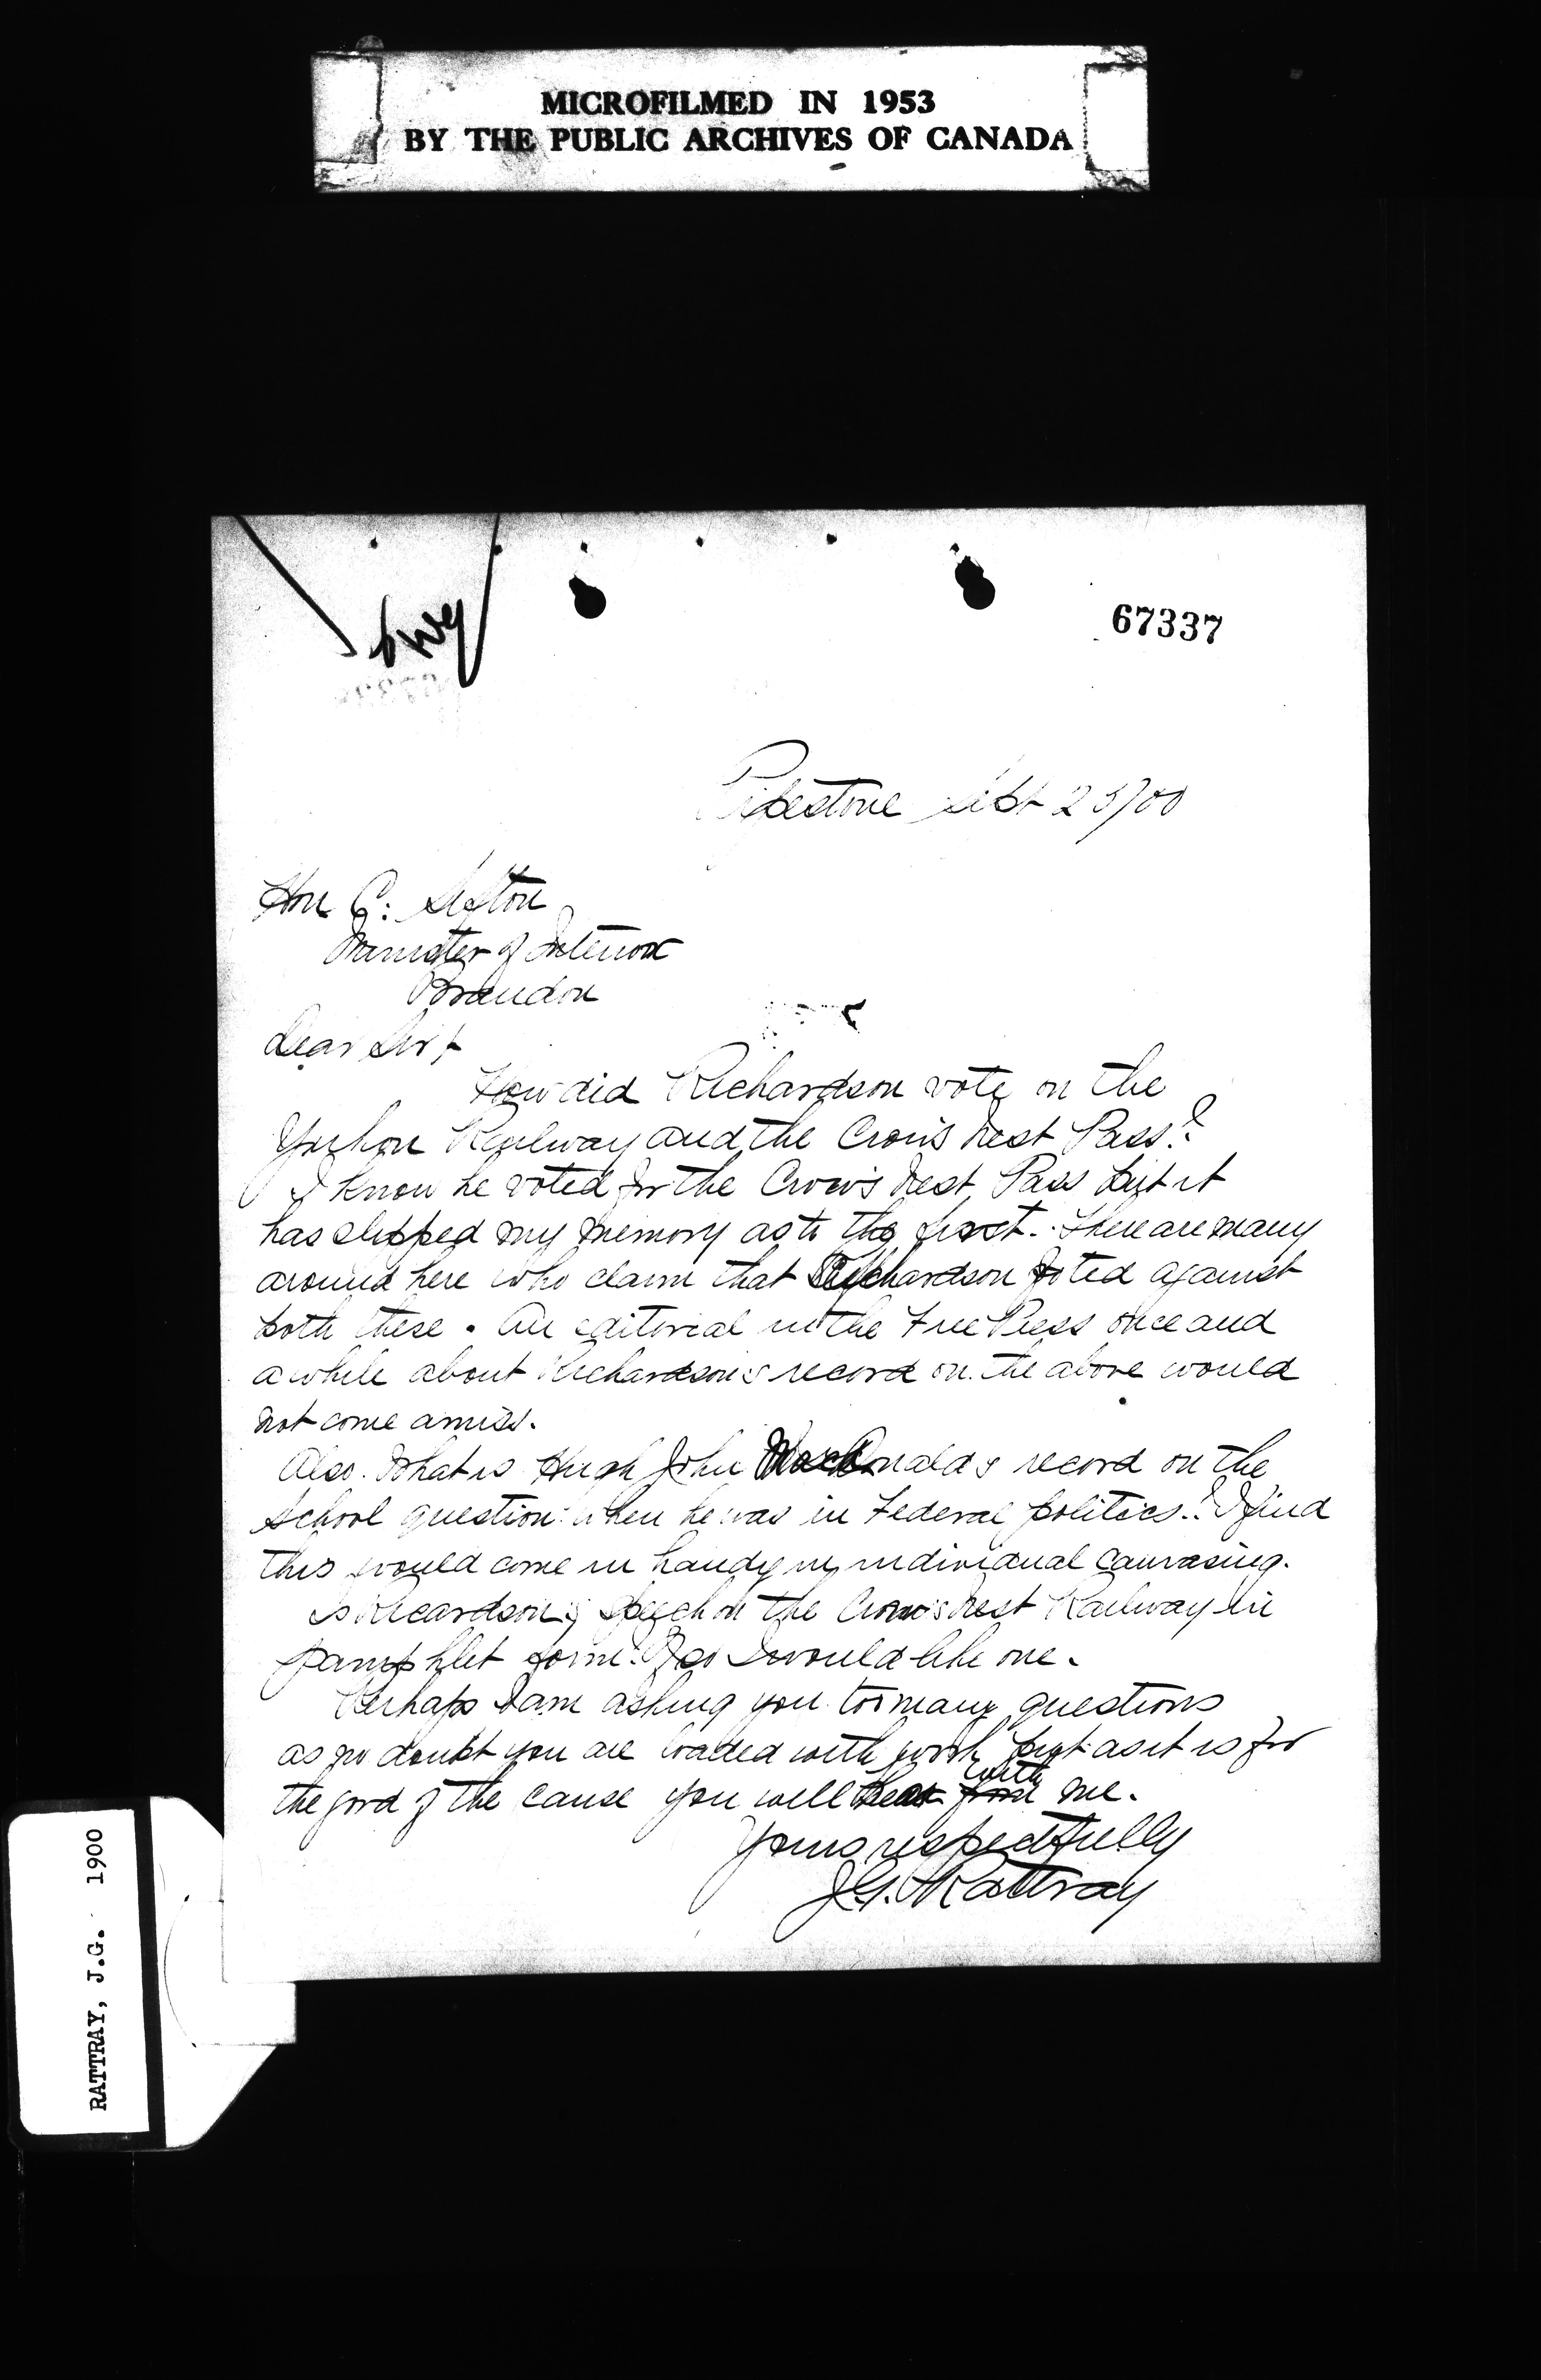 MICROFILMED IN 1953
BY THE PUBLIC ARCHIVES OF CANADA
67337
Pipestone Sept 25/00
Hon C. Sifton
Minister of Interior
Brandon
Dear Sir
How did Richardson vote on the
Yukon Railway and the Crow's Nest Pass?
I know he voted for the Crow's Nest Pass but it
has slipped my memory as to the first. There are many
around here who claim that Richardson voted against
both these. An editorial in the Free Press once and
a while about Richardson's record on the above would
not come amiss.
Also. What is Hugh John MacDonalds record on the
school question when he was in Federal politics? I find
this would come in handy in individual canvasing.
Is Ricardson's speech on the Crow's Nest Railway in
pamphlet form? If so I would like one.
Perhaps I am asking you too many questions
as no doubt you are loaded with work but as it is for
the good of the cause you will bear with me.
Yours respectfully
J.G. Rattray
RATTRAY, J.G. 1900